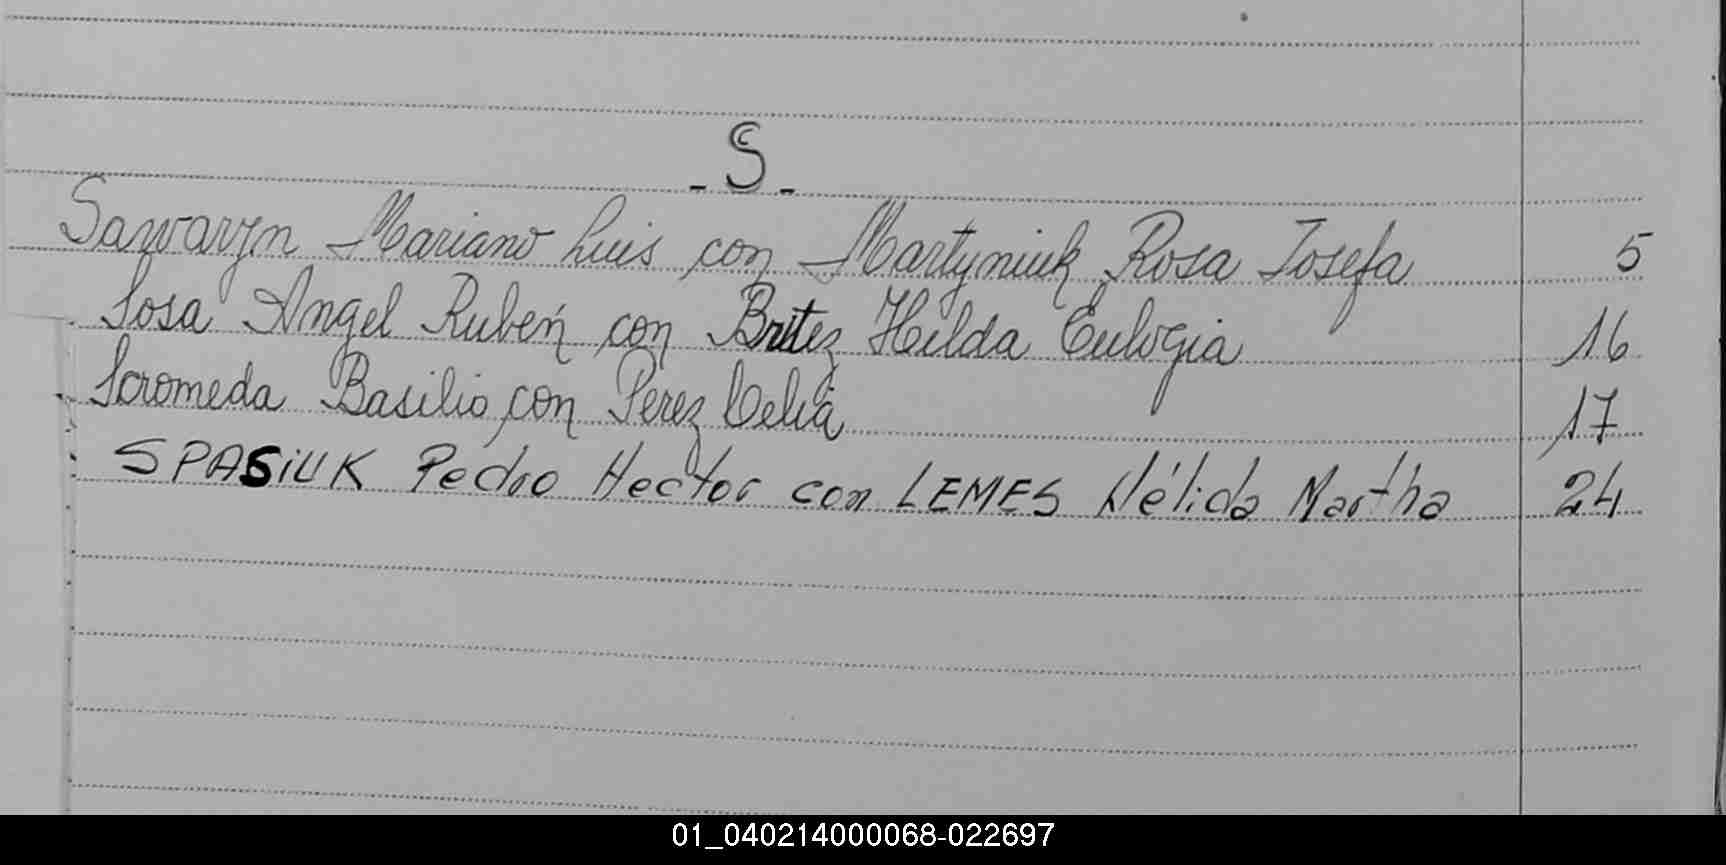 - S -
Sawaryn Mariano Luis con Martyniuk Rosa Josefa 5
Sosa Angel Rubén con Britez Hilda Eulogia 16
Scromeda Basilio con Perez Celia 17
SPASiUK Pedro Hector con LEMES Nélida Martha 24
01_040214000068-022697